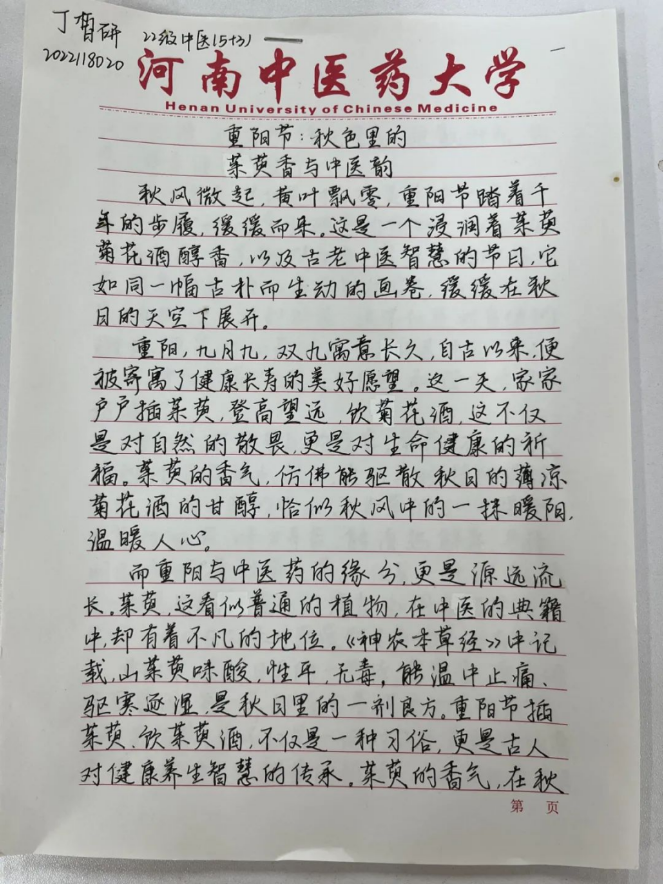 丁智研 22级中医(5+3)
2022118020
一
河南中医药大学
Henan University of Chinese Medicine
重阳节:秋色里的
茱萸香与中医韵
秋风微起,黄叶飘零,重阳节踏着千
年的步履,缓缓而来。这是一个浸润着茱萸
菊花酒醇香,以及古老中医智慧的节日,它
如同一幅古朴而生动的画卷,缓缓在秋
日的天空下展开。
重阳,九月九,双九寓意长久,自古以来,便
被寄寓了健康长寿的美好愿望。这一天,家家
户户插茱萸,登高望远,饮菊花酒,这不仅
是对自然的敬畏,更是对生命健康的祈
福。茱萸的香气,仿佛能驱散秋日的薄凉
菊花酒的甘醇,恰似秋风中的一抹暖阳,
温暖人心。
而重阳与中医药的缘分,更是源远流
长。茱萸,这看似普通的植物,在中医的典籍
中,却有着不凡的地位。《神农本草经》中记
载,山茱萸味酸,性平,无毒,能温中止痛、
驱寒逐湿,是秋日里的一剂良方。重阳节插
茱萸、饮茱萸酒,不仅是一种习俗,更是古人
对健康养生智慧的传承。茱萸的香气,在秋
第 页